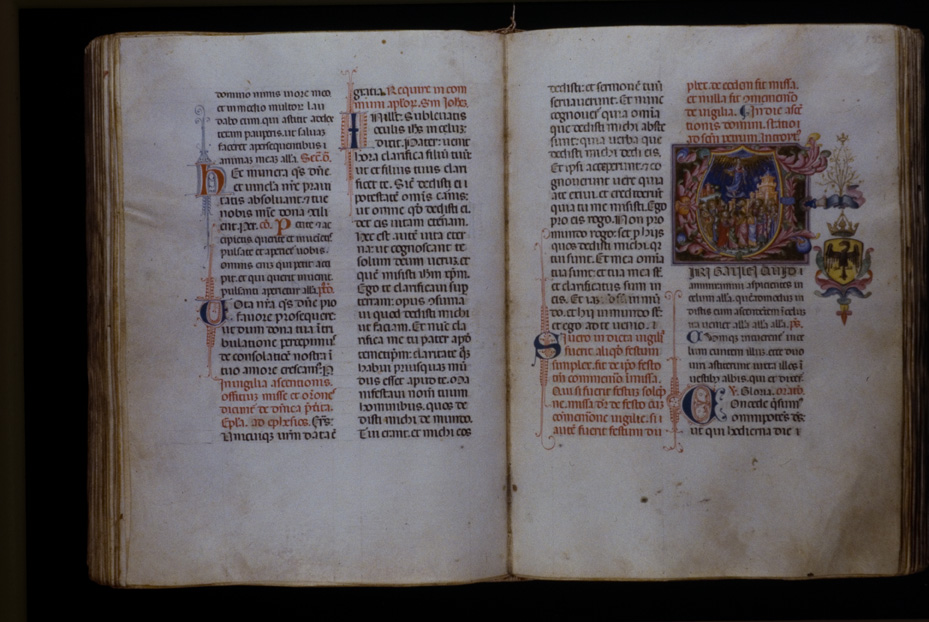 domino nimis in ore meo
et in medio multor lau
dabo eum qui astitit ad dex
teram pauperis. ut saluas
faceret a persequentibus
animas meas alla. Secᷓ.
Hec munera qs dne
et uincla nre praui
tatis absoluant: et tue
nobis mie dona
pulsate et aperiet uobis.
omnis eni qui petit acci
pit. et qui querit inuenit.
pulsanti aperietur alla.
Vota nra qs dne pio
fauore prosequere
ut dum dona tua i tri
bulatione percepimus
de consolatoe nostra i
tuo amore crescam.
In uigilia ascentionis.
officium misse et orone
dicime de dnica
Epla. ad ephesios. Frs:
Vnicuiq urm data e
gratia. Require in com
muni aplor. Sm Iohes.
In ill. Subleuatis
oculis ihs in celum:
dixit. Pater: uenit
hora clarifica filiu tuu
ut et filius tuus clari
ficet te. Sic dedisti ei
potestate omis carnis:
ut omne qd dedisti ei.
det eis uitam eternam.
Hec est aute uita eter
na: ut cognoscant te
solum deum ueru: et
que misisti ihm xpm.
Ego te clarificaui sup
terram: opus osuma
ui quod dedisti michi
ut faciam. Et nuc cla
rifica me tu pater apud
temetipm: claritate qa
habui priusquam mu
dus esset apud te.
nifestaui nom tuum
hominibus. quos de
disti michi de mundo.
Tui erant. et michi eos
dedisti: et sermone tuu
seruauerunt. Et nunc
cognouerut quia omia
que dedisti michi abs te
sunt: quia uerba que
dedisti michi dedi eis.
Et ipsi acceperunt: et co
gnouerunt uere quia
a te exiui. et crediderut
quia tu me misisti. Ego
pro eis rogo. Non pro
mundo rogo: set pro hiis
quos dedisti michi. qr
tui sunt. Et mea omia
tua sunt: et tua mea st
et clarificatus sum in
eis. Et ia no sum in mu
do. et hii in mundo st
et ego ad te uenio.
Si uero in dicta uigil
fuerit aliqd festum
simplex. fit de ipo festo
cu commemo i missa.
Qui si fuerit festus solep
ne. missa dr de festo cu
comemone uigilie. si
aute fuerit festum du
plex. de eodem fit missa.
et nulla fit memo
de uigilia. In die asce
tionis domini. statio
ad scm petrum. Introit.
VIRI GALILEI QUID
ammiramini aspicientes in
celum alla. quemadmodum ui
distis eum ascendentem i celu
ita ueniet alla alla alla. ps.
Cumque intuerent in ce
lum euntem illu. ecce duo
uiri astiterunt iuxta illos i
uestib albis. qui et dixert
V. Gloria. oratio.
Concede qsum
omnipotens ds:
ut qui hodierna die